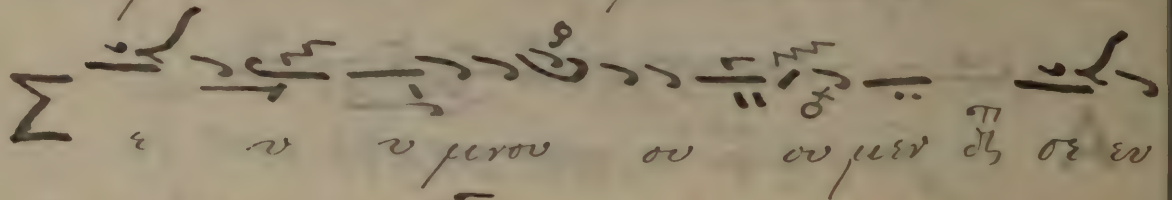 Σε υ υ μνου ου ου μεν σε ευ